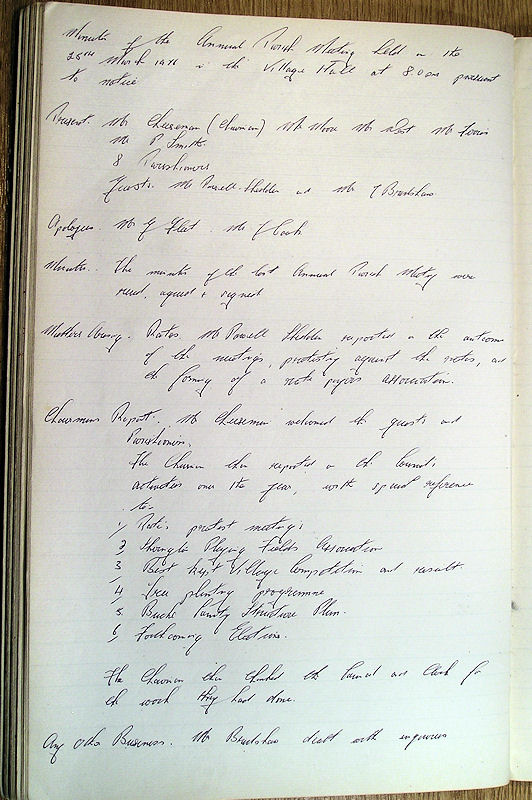 Minutes of the Annual Parish Meeting held on the
25th March 1976 in the Village Hall at 8.0 pm pursuant
to notice
Present. Mr Cheeseman (Chairman) Mr Moore Mr West Mr
Mr P Smith
8 Parishioners
Guests. Mr Powell-Shedden and Mr J Bradshaw
Apologies. Mr G Flat. Mr J Cook
Minutes. The minutes of the last Annual Parish Meeting were
read, agreed & signed
Matters Arising. Rates. Mr Powell Shedden reported on the outcome
of the meetings, protesting against the rates, and
the forming of a rate payers association.
Chairmans Report. Mr Cheeseman welcomed the guests and
Parishioners.
The Chairman then reported on the Councils
activities over the year, with special reference
to:-
1, Rates protest meetings
2, Playing Fields Association
3, Best Kept Village Competition and result.
4, Tree planting programme
5, Bucks County Structure Plan.
6, Forthcoming Elections.
The Chairman then thanked the Council and Clerk for
the work they had done.
Any Other Business. Mr Bradshaw dealt with enquiries